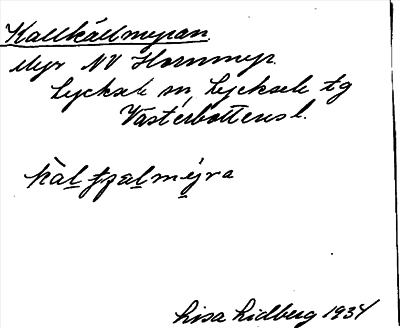 Kallkällmyran
Myr NV Hornmyr.
Lycksele sn, Lycksele tg
Västerbottens l.
kàl tjæl mýra
Lisa Lidberg 1934